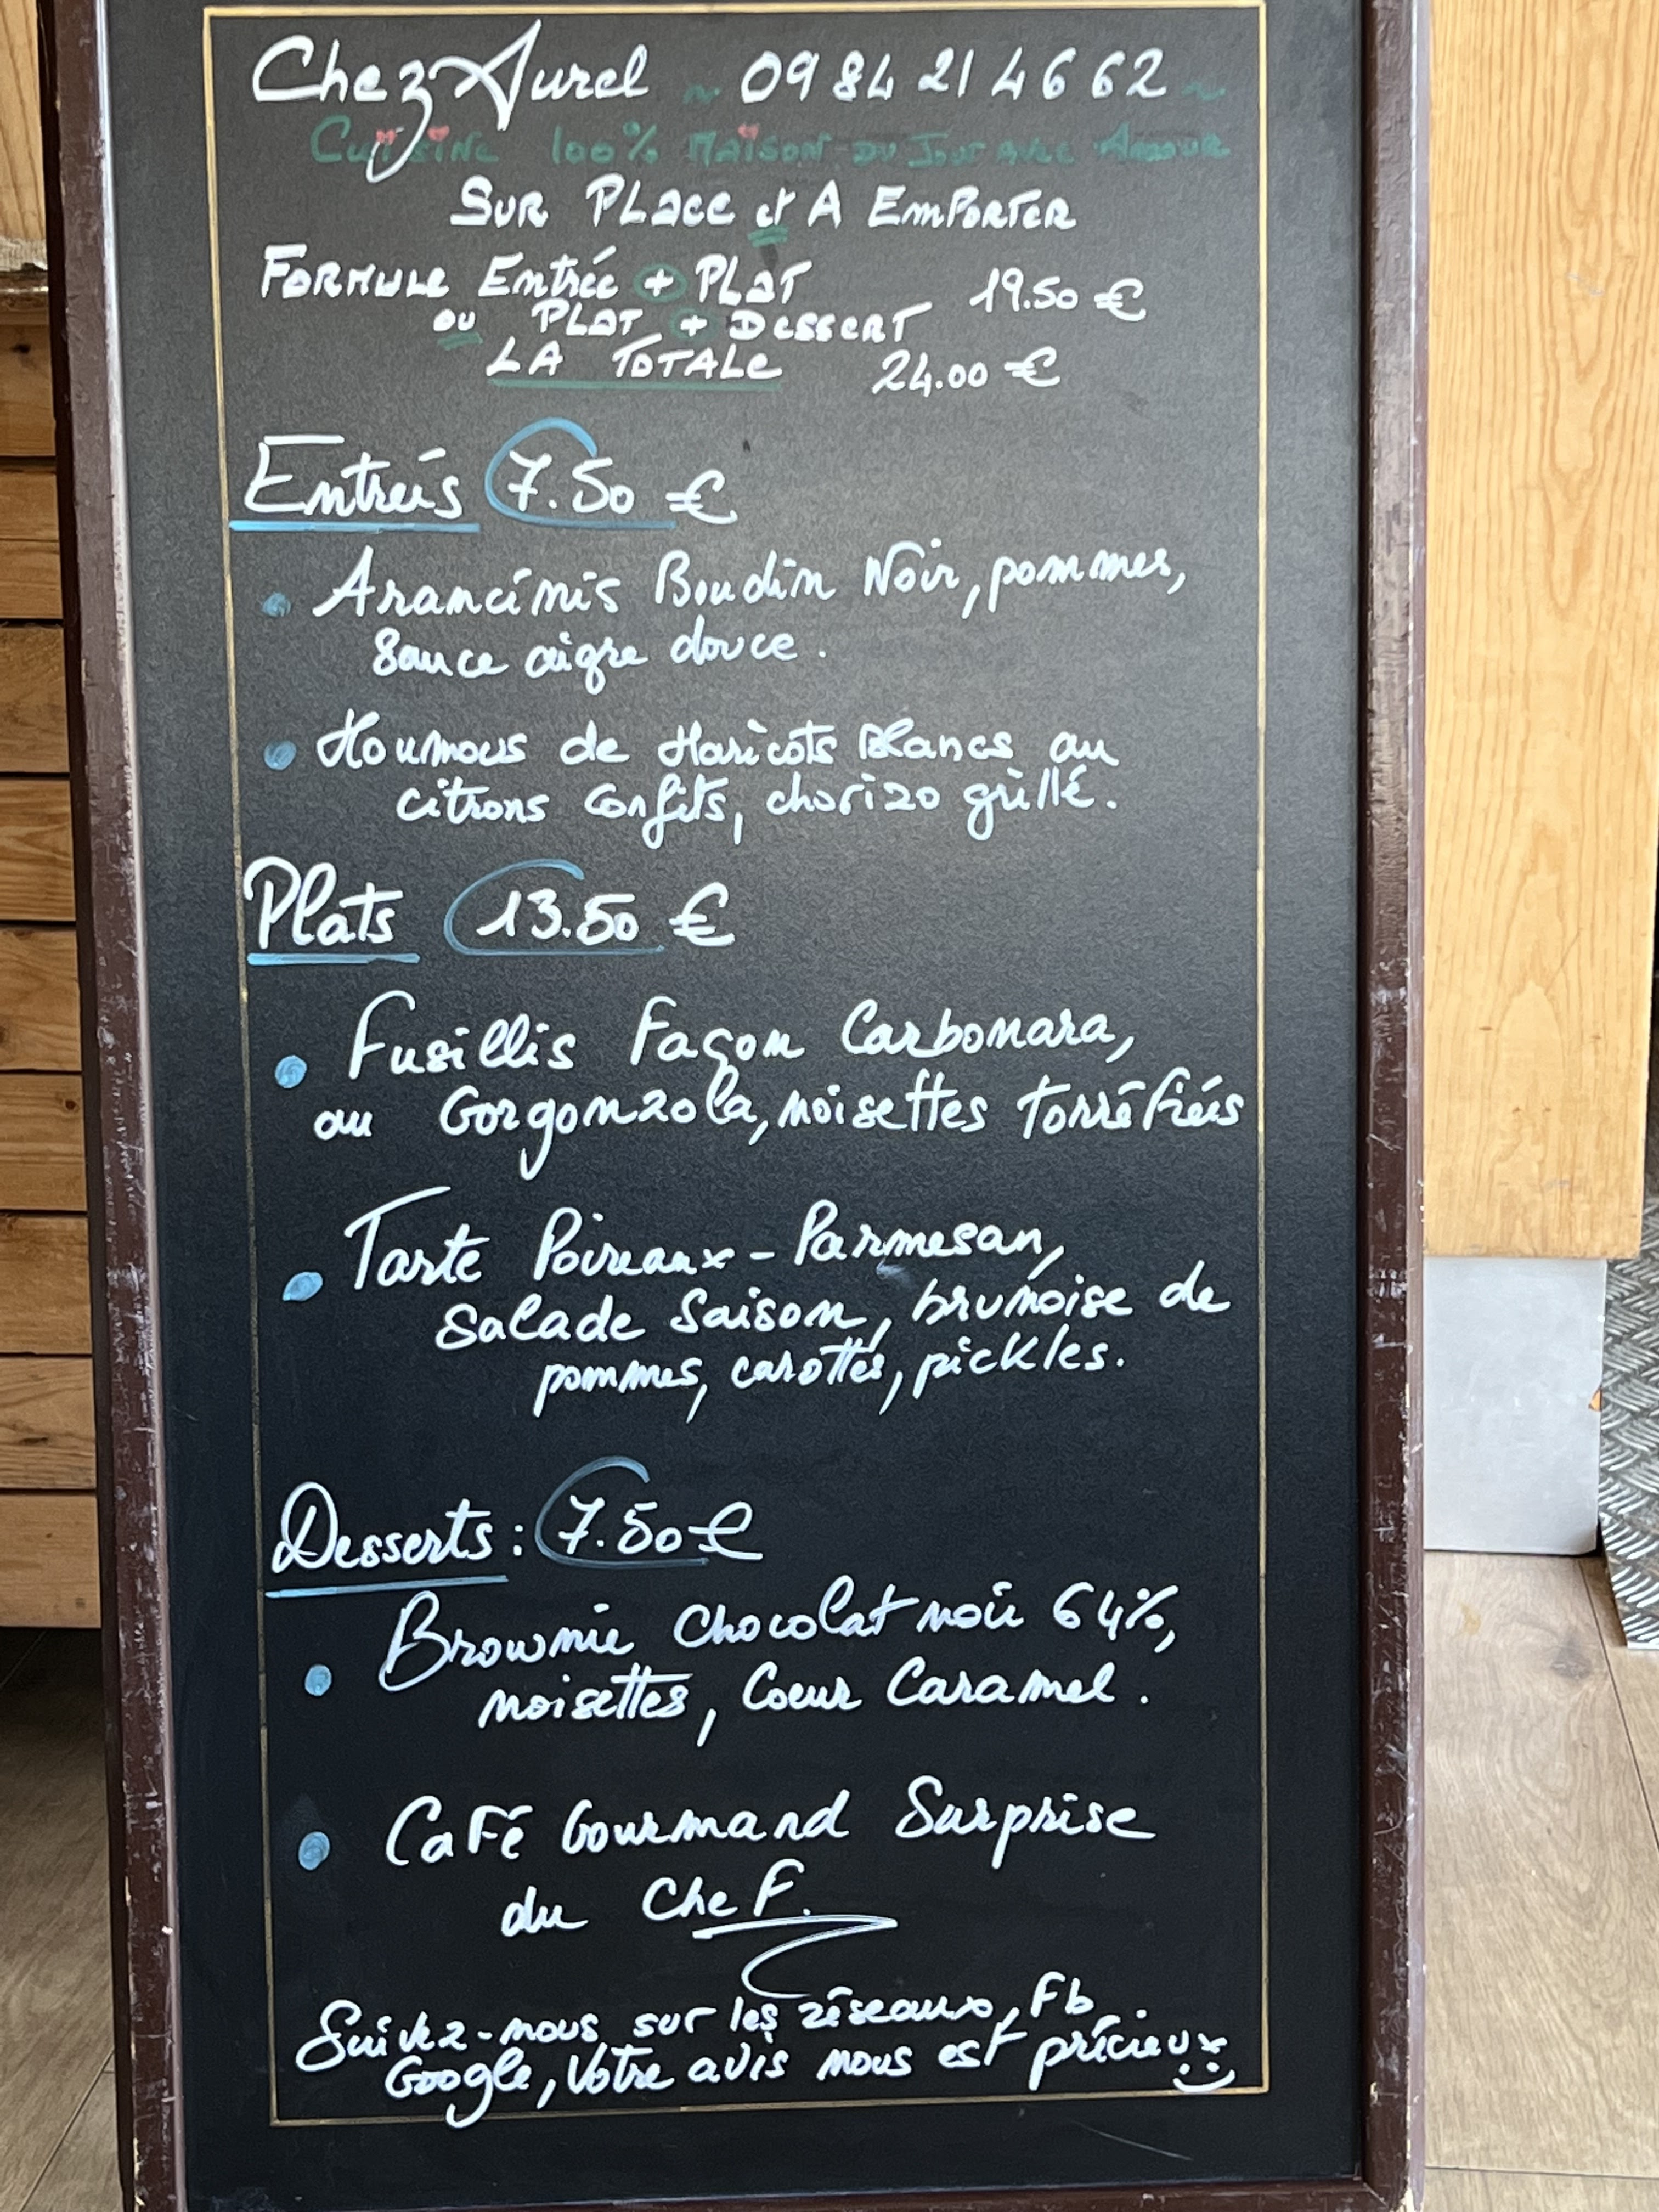 Chez Aurel ~ 09 84 21 46 62 ~
Cuisine 100% Maison du Jour avec Amour
Sur Place et A Emporter
Formule Entrée + Plat 19.50 €
ou Plat + Dessert
La Totale 24.00 €
Entrées 7.50 €
• Arancinis Boudin Noir, pommes,
sauce aigre douce.
• Houmous de Haricots Blancs au
citrons confits, chorizo grillé.
Plats 13.50 €
• Fusillis Façon Carbonara,
au Gorgonzola, noisettes torréfiées
• Tarte Poireaux - Parmesan,
salade saison, brunoise de
pommes, carottes, pickles.
Desserts : 7.50 €
• Brownie Chocolat noir 64%,
noisettes, Coeur Caramel.
• Café Gourmand Surprise
du Chef.
Suivez-nous sur les réseaux, Fb,
Google, Votre avis nous est précieux